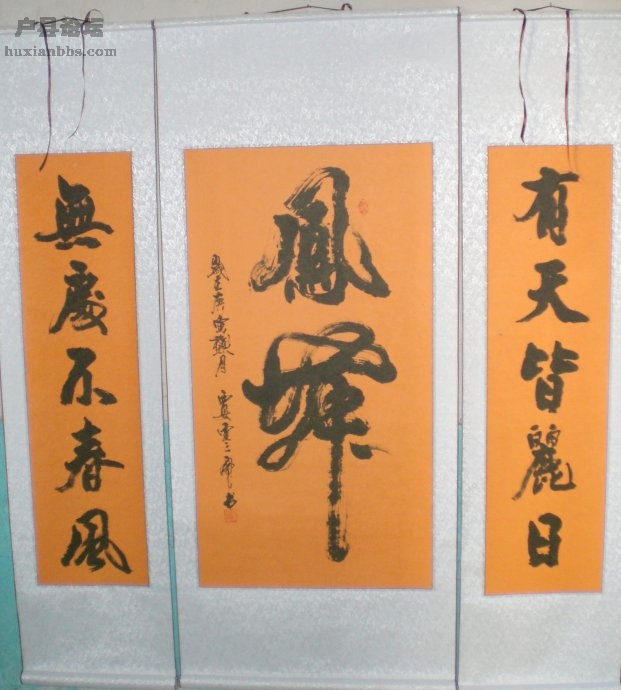 户县论坛
huxianbbs.com
有天皆麗日
鳳舞
歲在庚寅臘月
無處不春風